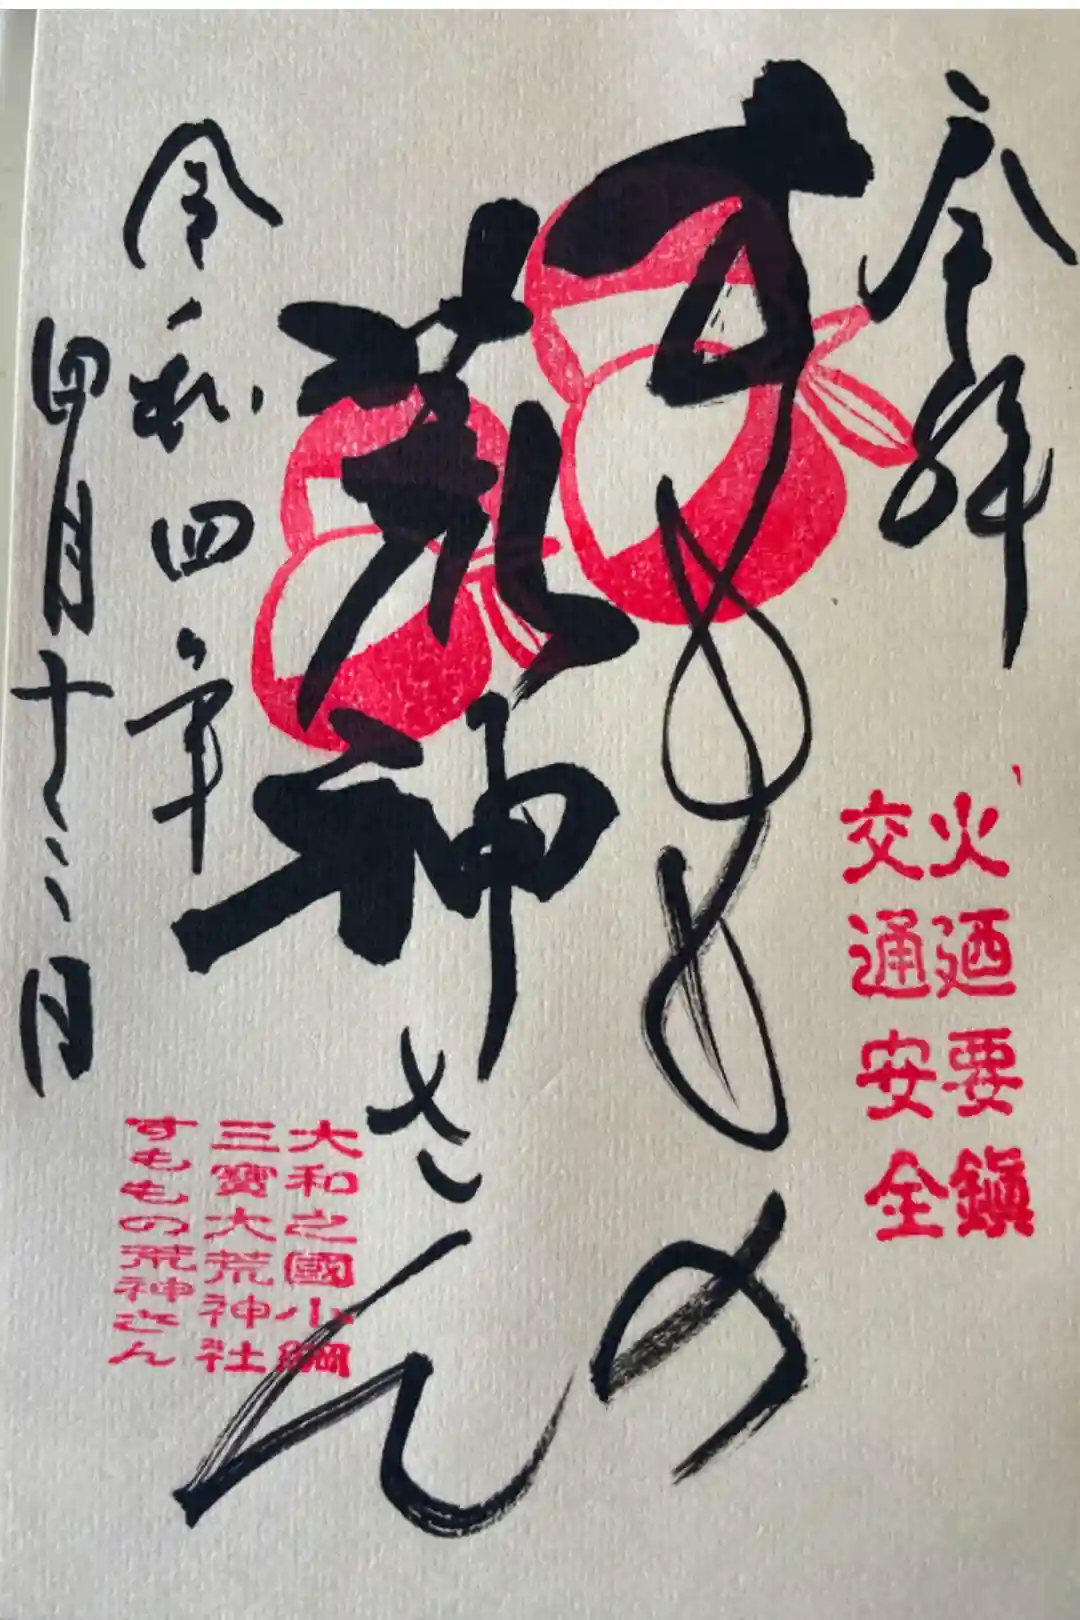 奉拝
火廼要鎮
交通安全
すももの
荒神さん
大和之國小綱
三寶大荒神社
すももの荒神さん
令和四年
四月十三日